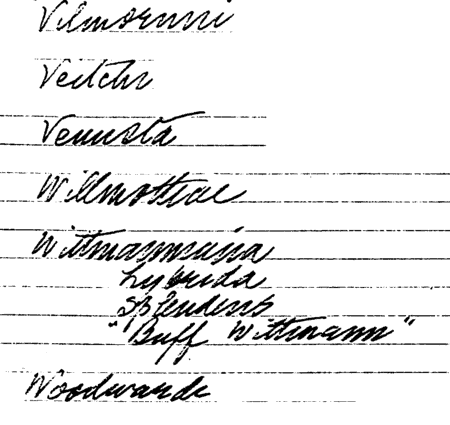 Vilmorinii
Veitchi
Venusta
Willmottiae
Wittmanniana
hybrida
splendens
"Buff Wittmann"
Woodwardi